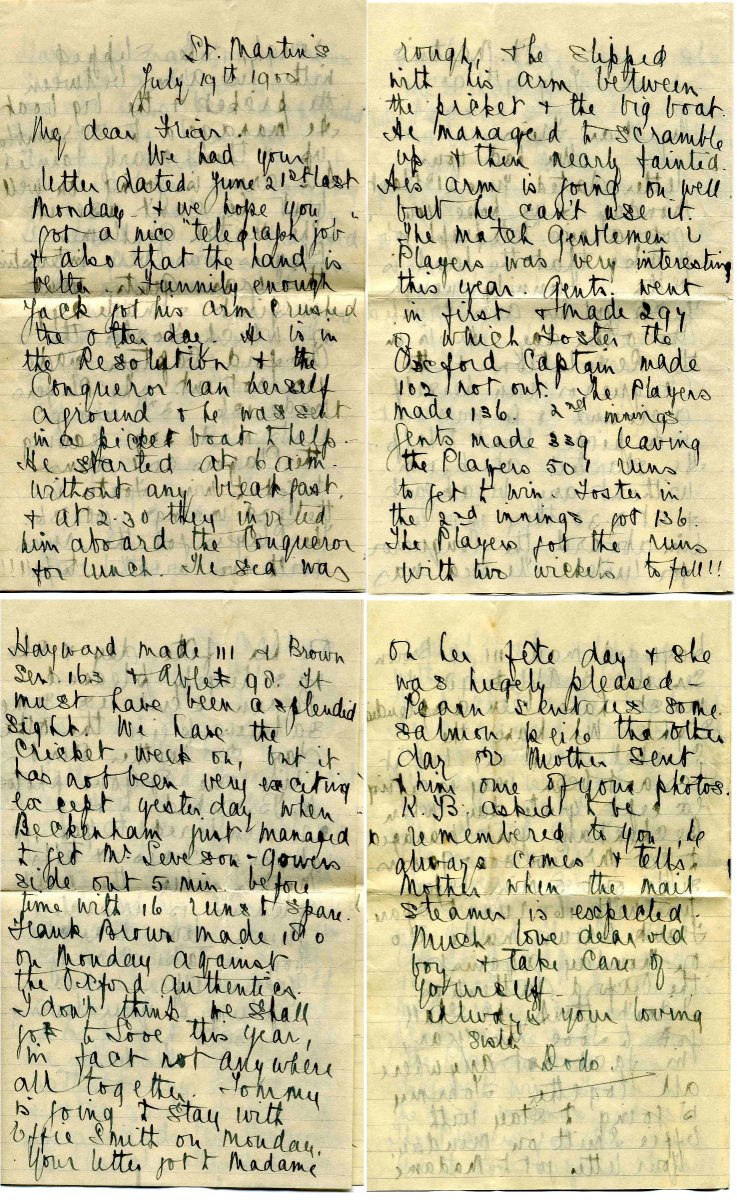 St. Martin's
July 19th 1900
My dear Friar.
We had your
letter dated June 21st last
Monday - & we hope you
got a nice "telegraph job"
& also that the hand is
better. Funnily enough
Jack got his arm crushed
the other day. He is in
the Resolution & the
Conqueror ran herself
aground & he was sent
in a picket boat to help.
He started at 6 a.m.
without any breakfast,
& at 2.30 they invited
him aboard the Conqueror
for lunch. The sea was
rough, & he slipped
with his arm between
the picket & the big boat.
He managed to scramble
up & then nearly fainted.
His arm is going on well
but he can't use it.
The match Gentlemen v
Players was very interesting
this year. Gents. went
in first & made 297
of which Foster the
Oxford Captain made
102 not out. The Players
made 136. 2nd innings
Gents made 339 leaving
the Players 501 runs
to get to win. Foster in
the 2nd innings got 136.
The Players got the runs
with two wickets to fall!!
Hayward made 111 & Brown
Sen. 163 & Abel 98. It
must have been a splendid
sight. We have the
Cricket week on, but it
has not been very exciting
except yesterday when
Beckenham just managed
to get Mr Leveson-Gowers
side out 5 min. before
time with 16 runs to spare.
Frank Brown made 100
on Monday against
the Oxford Authentics.
I don't think we shall
go to Looe this year,
in fact not anywhere
all together. Tommy
is going to stay with
Effie Smith on Monday.
Your letter got to Madame
on her fête day & she
was hugely pleased -
sent us some
salmon the other
day & Mother sent
him one of your photos.
K.B. asked to be
remembered to you, he
always comes & tells
Mother when the mail
steamer is expected.
Much love dear old
boy, & take care of
yourself -
always your loving
Sister
Dodo.